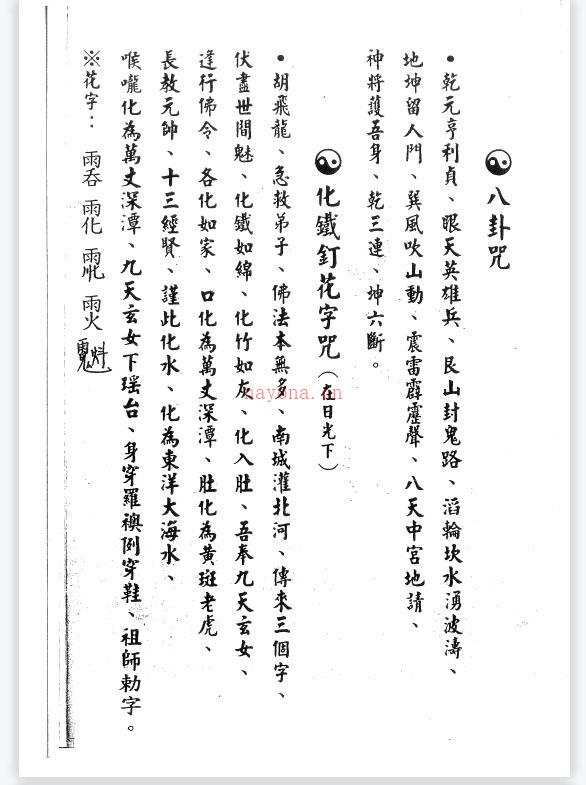 八卦咒
•乾元亨利貞、眼天英雄兵、艮山封鬼路、滔輪坎水湧波濤、
地坤留人門、巽風吹山動、震雷霹靂聲、八天中宮地請、
神將護吾身、乾三連、坤六斷。
化鐵釘花字咒(在日光下)
•胡飛龍、急救弟子、佛法本無多、南城灌北河、傳來三個字、
伏盡世間魅、化鐵如綿、化竹如灰、化入肚、吾奉九天玄女、
逢行佛令、各化如家、口化為萬丈深潭、肚化為黃斑老虎、
長教元帥、十三經賢、謹此化水、化為東洋大海水、
喉嚨化為萬丈深潭、九天玄女下瑶台、身穿羅襖倒穿鞋、祖師勅字。
※花字：
nayona.cn